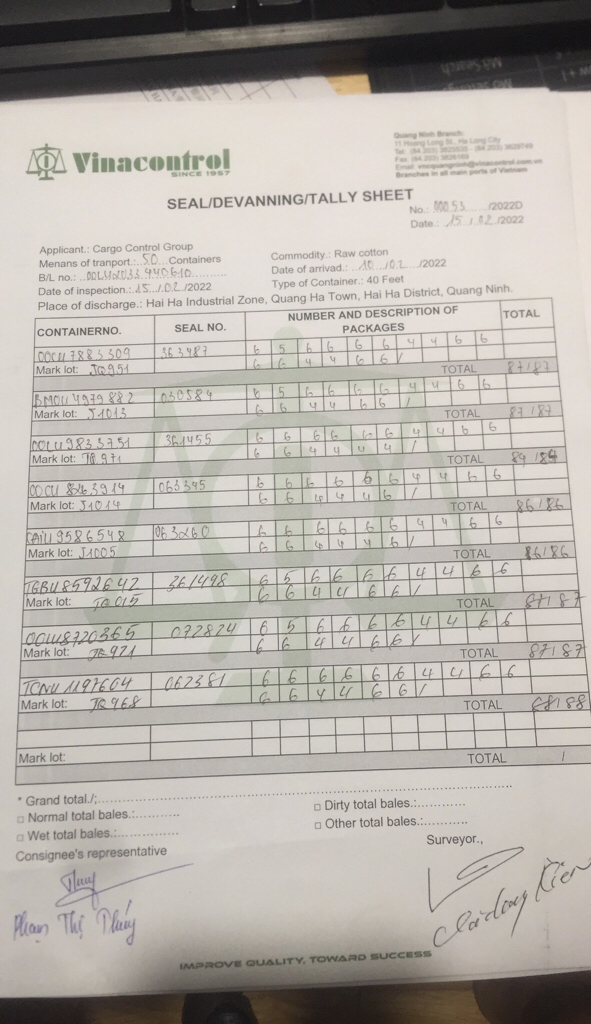 Mở Search
Vinacontrol
SINCE 1957
Quang Ninh Branch:
11 Hoang Long St., Ha Long City
Branches in all main ports of Vietnam
SEAL/DEVANNING/TALLY SHEET
No.: 00053 /2022D
Date.: 15 / 02 /2022
Applicant.: Cargo Control Group
Commodity.: Raw cotton
Menans of tranport.: 50 Containers
Date of arrivad.: 10 /02 /2022
B/L no.:
Type of Container.: 40 Feet
Date of inspection.: 15 /02 /2022
Place of discharge.: Hai Ha Industrial Zone, Quang Ha Town, Hai Ha District, Quang Ninh.
CONTAINERNO. SEAL NO. NUMBER AND DESCRIPTION OF PACKAGES TOTAL
OOCU7883309 363487 6 5 6 6 6 6 4 4 6 6
6 6 4 4 6 6 /
Mark lot: JQ951 TOTAL 87/87
BMOU4979882 030584 6 5 6 6 6 6 4 4 6 6
6 6 4 4 6 6 /
Mark lot: J1013 TOTAL 87/87
361455 6 6 6 6 6 6 4 4 6 6
6 6 4 4 4 4 /
Mark lot: TOTAL
063345 6 6 6 6 6 6 4 4 6 6
6 6 4 4 4 6 /
Mark lot: J1014 TOTAL 86/86
CAIU9586548 063260 6 6 6 6 6 6 4 4 6 6
6 6 4 4 4 6 /
Mark lot: J1005 TOTAL 86/86
TGBU8592642 361498 6 5 6 6 6 6 4 4 6 6
6 6 4 4 6 6 /
Mark lot: TOTAL 87/87
OOCU8720365 072824 6 5 6 6 6 6 4 4 6 6
6 6 4 4 6 6 /
Mark lot: TOTAL 87/87
TCNU1197604 062381 6 6 6 6 6 6 4 4 6 6
6 6 4 4 6 6 /
Mark lot: TOTAL 88/88
Mark lot: TOTAL /
* Grand total./:
□ Normal total bales.: □ Dirty total bales.:
□ Wet total bales.: □ Other total bales.:
Consignee's representative Surveyor.,
Phạm Thị Thúy
IMPROVE QUALITY, TOWARD SUCCESS